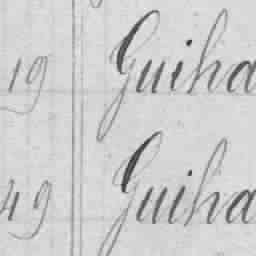 19 Guiha
49 Guiha